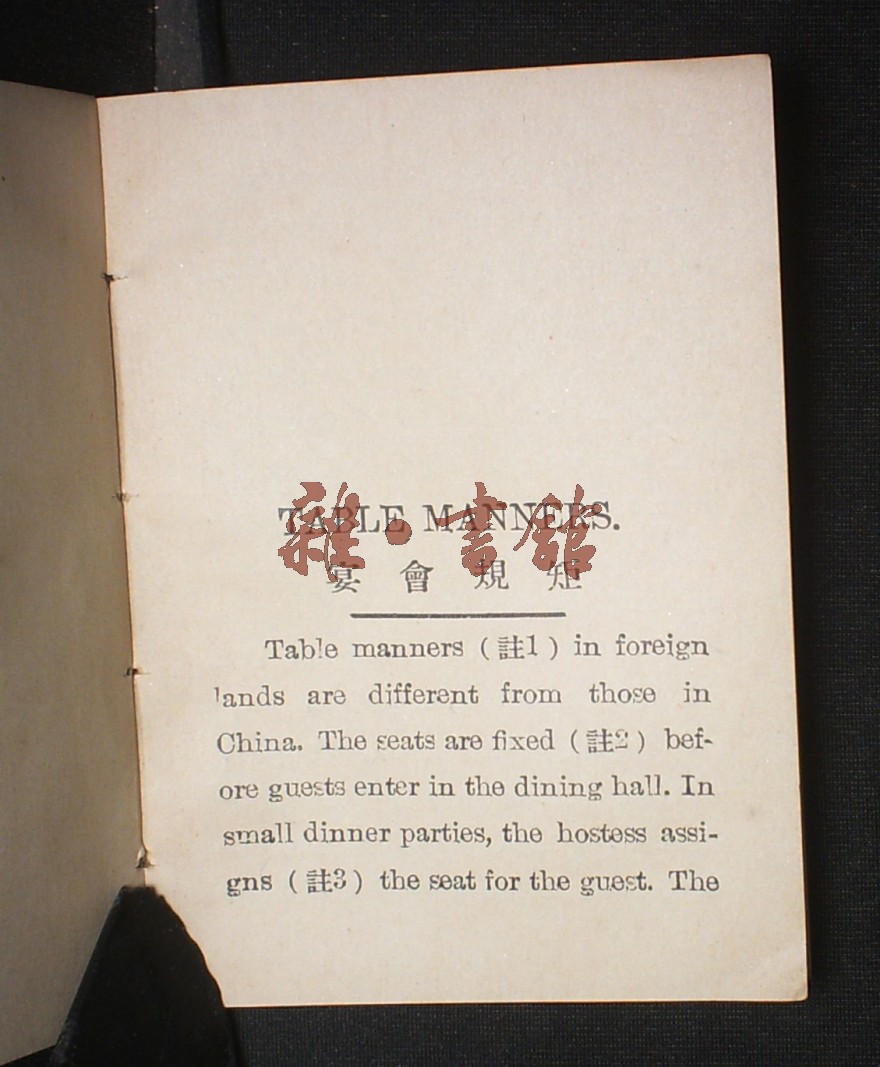 TABLE MANNERS.
雜·書館
宴會規矩
Table manners (註1) in foreign
lands are different from those in
China. The seats are fixed (註2) bef-
ore guests enter in the dining hall. In
small dinner parties, the hostess assi-
gns (註3) the seat for the guest. The